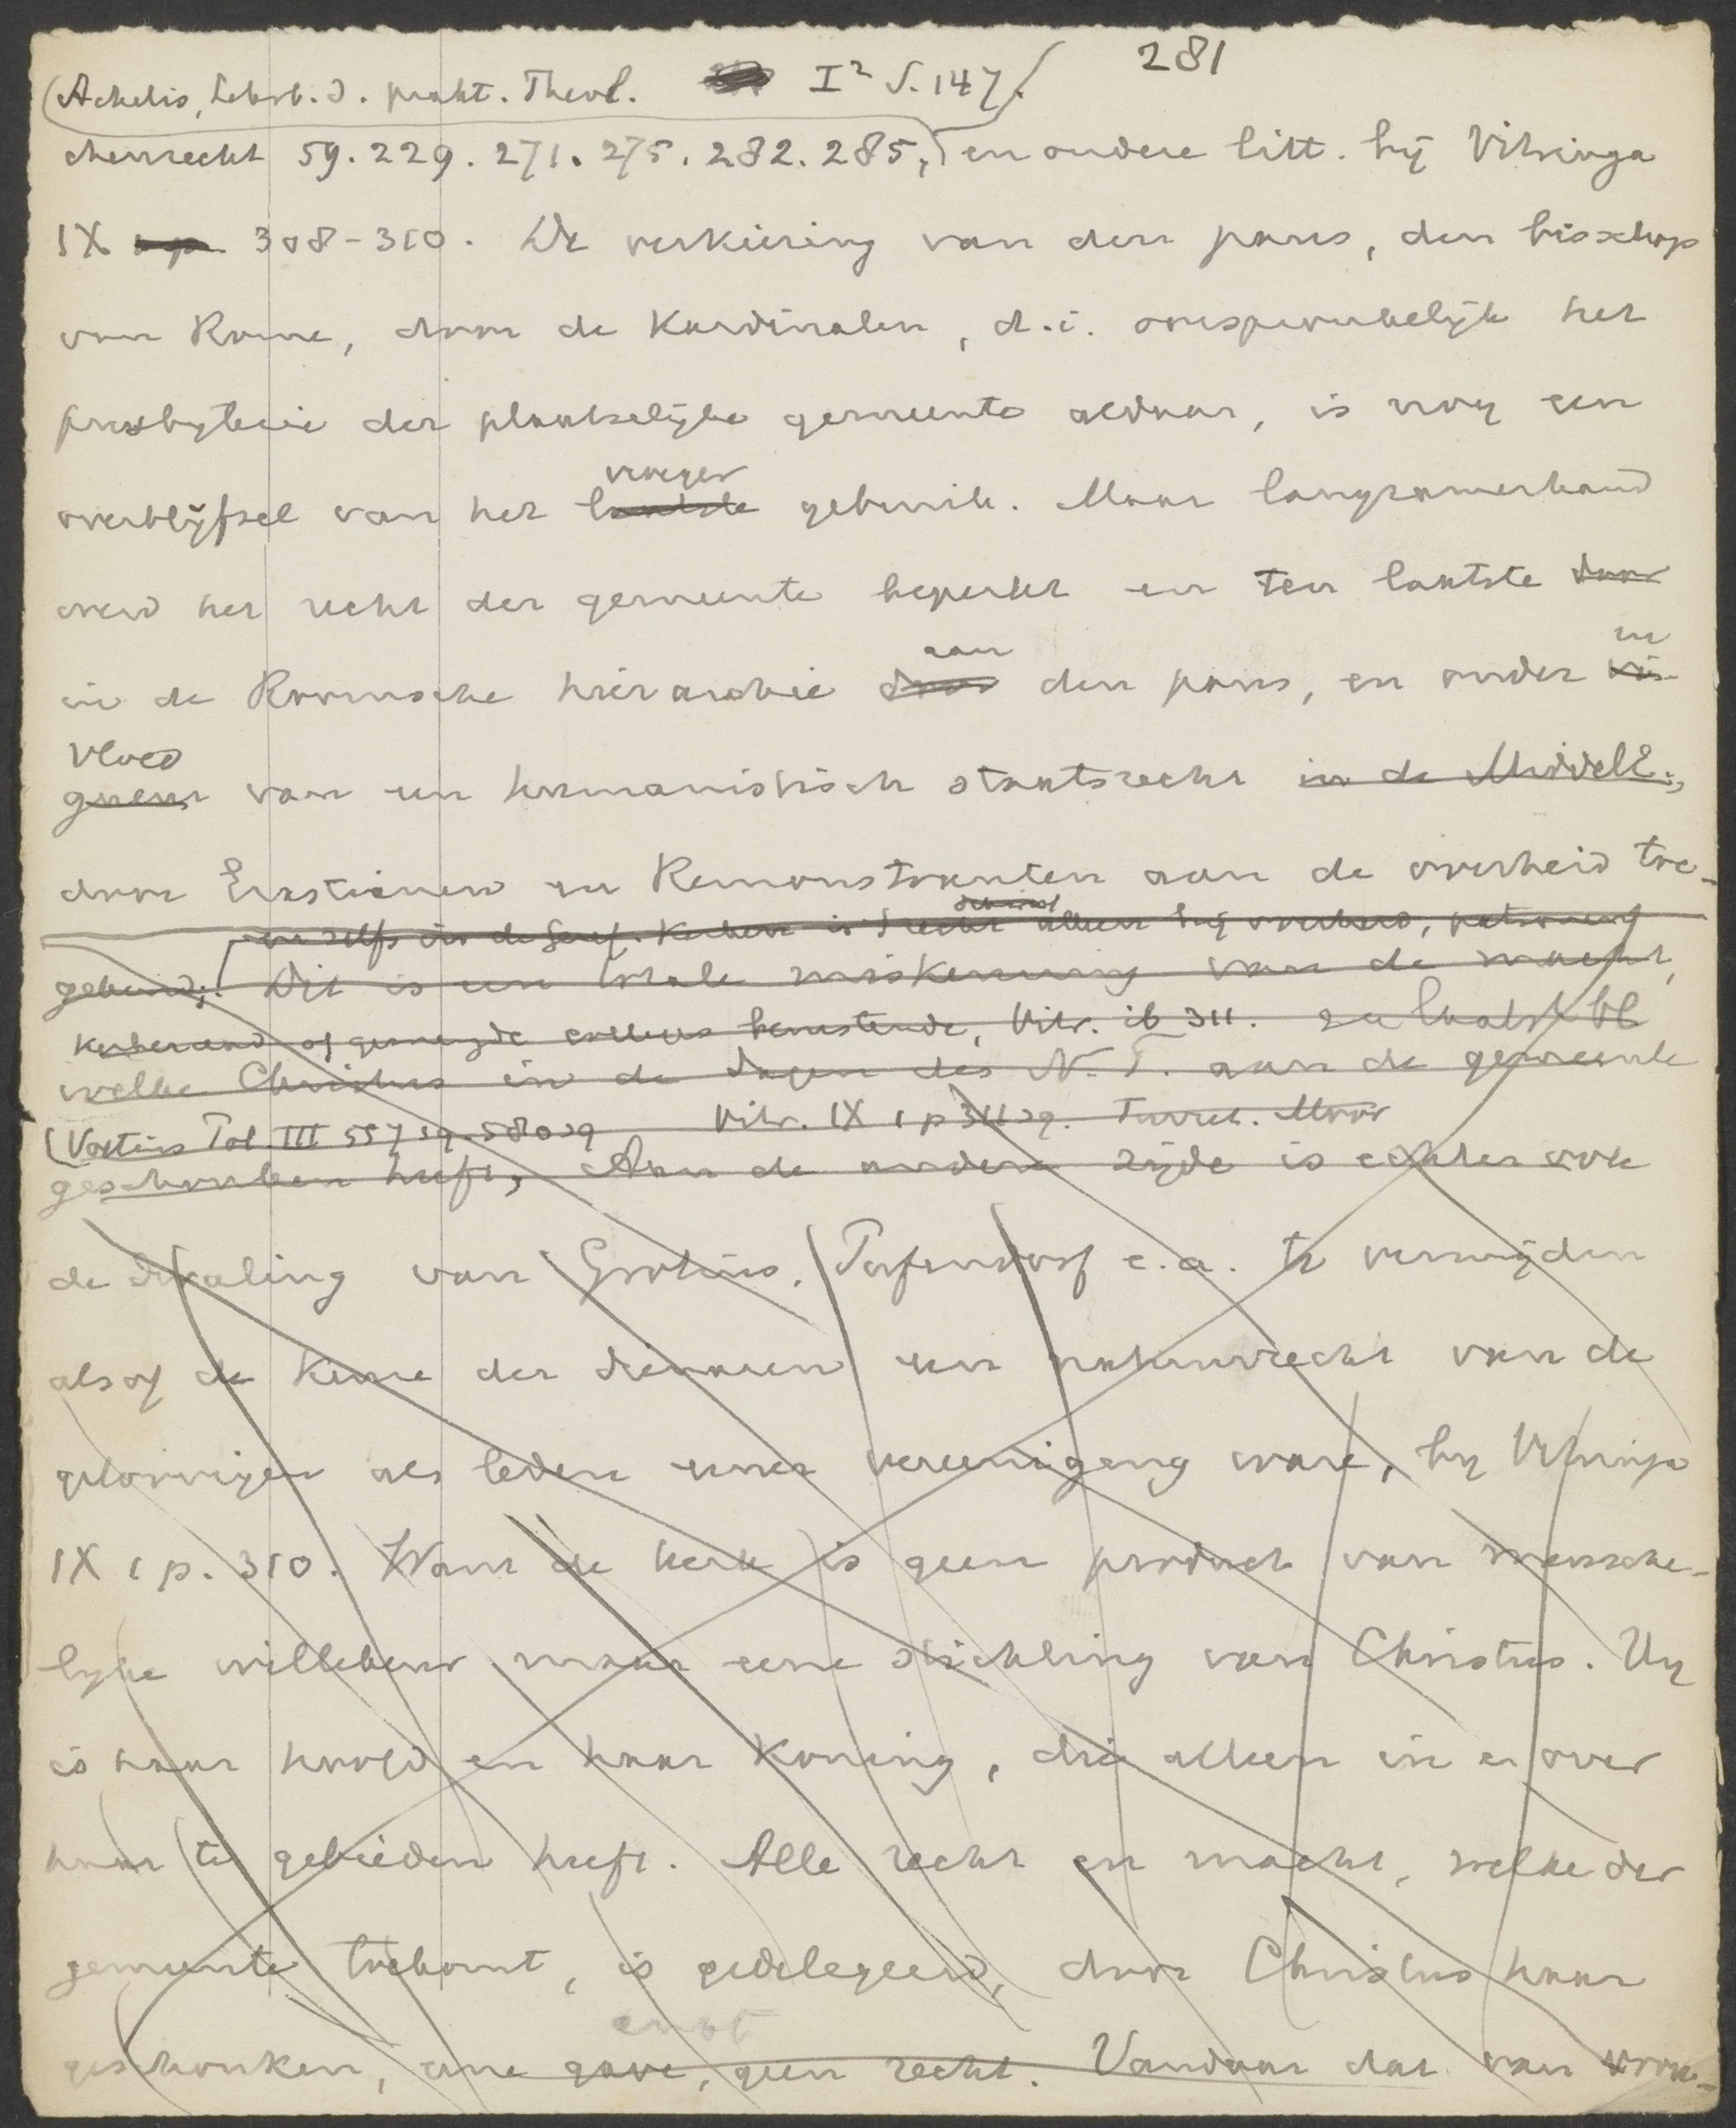 281
(Achelis, Lehrb. d. prakt. Theol. I² S. 147.
chenrecht 59. 229. 271. 275. 282. 285, en andere litt. bij Vitringa
IX 1 p. 308-310. De verkiezing van den paus, den bisschop
van Rome, door de Kardinalen, d.i. oorspronkelijk het
presbyterie der plaatselijke gemeente aldaar, is nog een
vroeger
overblijfsel van het laatste gebruik. Maar langzamerhand
werd het recht der gemeente beperkt en ten laatste door
aan in
in de Roomsche hierarchie door den paus, en onder
vloed
van een humanistisch staatsrecht in de Middele.,
door Erastianen en Remonstranten aan de overheid toe-
en zelfs in de Geref. Kerken is 't recht dikwijls alleen bij overheid, patroon of
gekend; Dit is een totale miskenning van de macht,
kerkeraad of gemengde colleges berustende, Vitr. ib 311. zie laatste bl
welke Christus in de dagen des N.T. aan de gemeente
(Voetius Pol. III 557 sq. 580 sq Vitr. IX 1 p 311 sq. Turret. Moor
geschonken heeft, Aan de andere zijde is echter ook
de dwaling van Grotius, Pufendorf e.a. te vermijden
alsof de keuze der dienaren een natuurrecht van de
geloovigen als leden eener vereeniging ware, bij Vitringa
IX 1 p. 310. Want de kerk is geen product van mensche-
lijke willekeur maar eene stichting van Christus. Hij
is haar hoofd en haar koning, die alleen in en over
haar te gebieden heeft. Alle recht en macht, welke der
gemeente toekomt, is gedelegeerd, door Christus haar
ambt
geschonken, eene gave, geen recht. Vandaar dat van